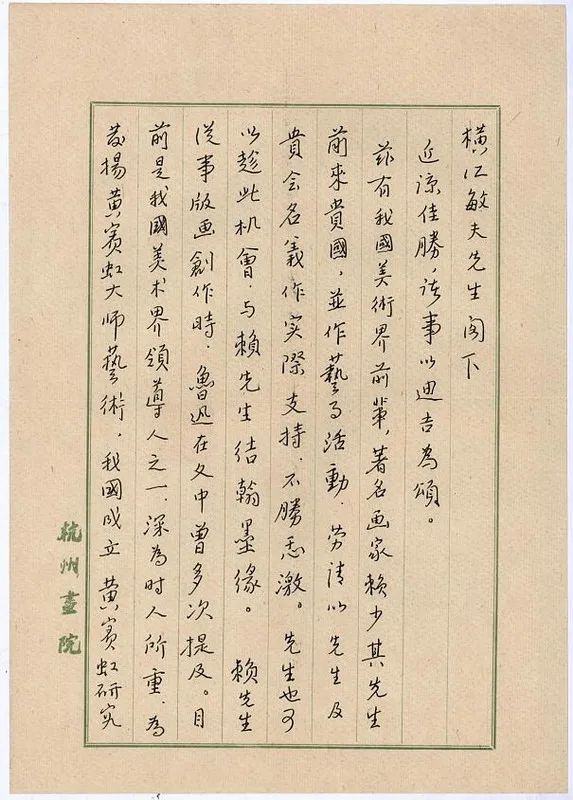 横江敏夫先生阁下
近谅佳勝，诸事以迪吉為頌。
兹有我國美術界前輩，著名画家賴少其先生
前來貴國，並作藝子活動．劳請以先生及
貴会名義作实際支持．不勝感激。先生也可
以趁此机會．与賴先生结翰墨缘。賴先生
從事版画創作時 魯迅在文中曾多次提及。目
前是我國美术界領導人之一．深為时人所重．為
發揚黄賓虹大师藝術．我國成立黄賓虹研究
杭州畫院